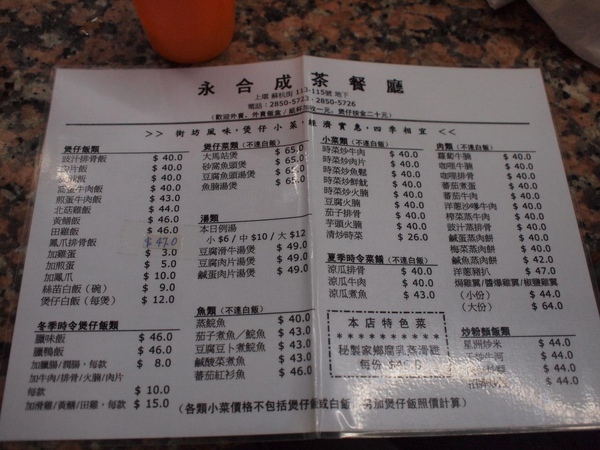 永合成茶餐廳
上環 蘇杭街 113-115號 地下
電話：2850-5723，2850-5726
>> 街坊風味，煲仔小菜，經濟實惠，四季相宜 <<
煲仔飯類
豉汁排骨飯 $ 40.0
肉片飯 $ 40.0
$ 40.0
窩蛋牛肉飯 $ 40.0
煎蛋牛肉飯 $ 43.0
北菇雞飯 $ 44.0
黃鱔飯 $ 46.0
田雞飯 $ 46.0
鳳爪排骨飯 $ 47.0
加雞蛋 $ 3.0
加煎蛋 $ 5.0
加鳳爪 $ 10.0
絲苗白飯（碗） $ 9.0
煲仔白飯（每煲） $ 12.0
冬季時令煲仔飯類
臘味飯 $ 46.0
臘鴨飯 $ 46.0
加臘腸/潤腸，每款 $ 8.0
加牛肉/排骨/火腩/肉片
每款 $ 10.0
加滑雞/黃鱔/田雞，每款 $ 15.0
煲仔菜類（不連白飯）
大馬站煲 $ 65.0
砂窩魚頭煲 $ 65.0
豆腐魚頭湯煲 $ 65.0
魚腩湯煲 $ 65.0
湯類
本日例湯
小 $6 / 中 $10 / 大 $12
豆腐滑牛湯煲 $ 49.0
豆腐肉片湯煲 $ 49.0
鹹蛋肉片湯煲 $ 49.0
魚類（不連白飯）
蒸鯇魚 $ 40.0
茄子煮魚／鯇魚 $ 43.0
豆腐豆卜煮鯇魚 $ 43.0
鹹酸菜煮魚 $ 43.0
蕃茄紅衫魚 $ 46.0
小菜類（不連白飯）
時菜炒牛肉 $ 40.0
時菜炒肉片 $ 40.0
時菜炒魚鬆 $ 40.0
時菜炒鮮魷 $ 40.0
時菜炒火腩 $ 40.0
豆腐火腩 $ 40.0
茄子排骨 $ 40.0
芋頭火腩 $ 40.0
清炒時菜 $ 26.0
夏季時令菜譜（不連白飯）
涼瓜排骨 $ 40.0
涼瓜牛肉 $ 40.0
涼瓜煮魚 $ 43.0
本店特色菜
* * * * * * * * *
秘製家鄉腐乳蒸滑雞
每份
肉類（不連白飯）
蘿蔔牛腩 $ 40.0
咖喱牛腩 $ 40.0
咖喱排骨 $ 40.0
蕃茄煮蛋 $ 40.0
蕃茄牛肉 $ 40.0
洋蔥沙嗲牛肉 $ 40.0
榨菜蒸牛肉 $ 40.0
豉汁蒸排骨 $ 40.0
鹹蛋蒸肉餅 $ 40.0
梅菜蒸肉餅 $ 40.0
鹹魚蒸肉餅 $ 42.0
洋蔥豬扒 $ 47.0
焗雞翼/醬爆雞翼/椒鹽雞翼
（小份） $ 44.0
（大份） $ 64.0
炒粉麵飯類
星洲炒米 $ 44.0
干炒牛河 $ 44.0
$ 44.0
$ 44.0
（各類小菜價格不包括煲仔飯或白飯，另加煲仔飯照價計算）